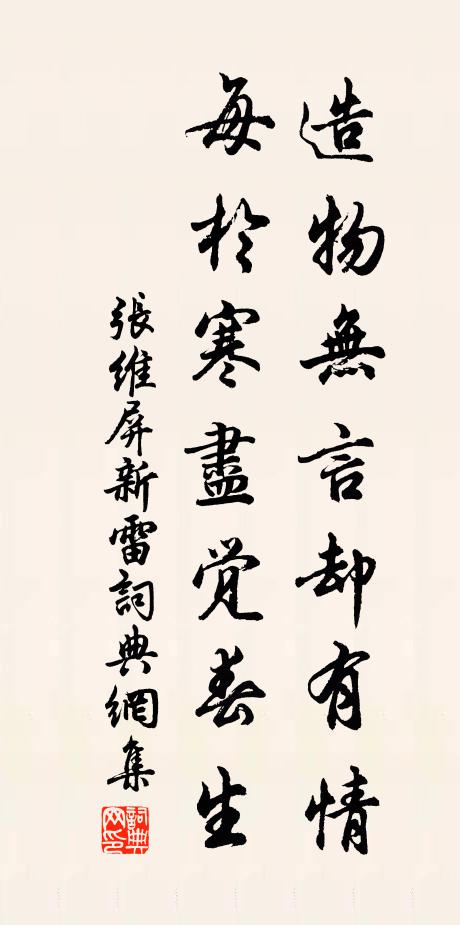 造物無言却有情
每於寒盡覚春生
張維屏新雷詞典網集
詞典網印